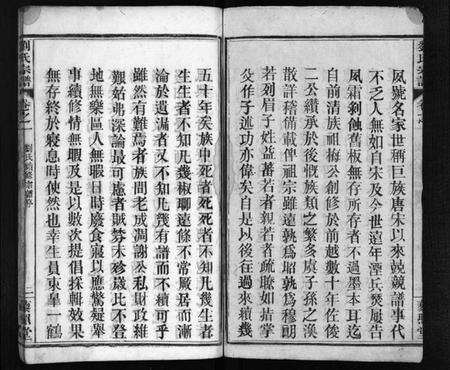 夙號名家世稱巨族唐宋以來兢兢譜事代
不乏人無如自宋及今世遠年湮兵燹屢告
風霜剥蝕舊板無存所存者不過墨本耳迄
自前淸族祖梅公創修於前越數十年佐俊
二公纘承於後慨族類之繁多虞子孫之渙
散詳稽備載俾祖宗雖遠孰爲昭孰爲穆朗
若列眉子姓益蕃若者親若者疏瞭如指掌
父作子述功亦偉矣自是以後在迂過來續幾
五十年矣族中死者死死者不知凡幾生者
生生者不知凡幾椒聊遠條不常厥居而漸
淪於遺漏者又不知凡幾有譜而不續可乎
雖然有難焉者族間老成凋謝公私財政維
艱始弗深論最可慮者賊勢未殄鐵比不登
地無樂區人無暇日時廢食寢以應驚疑舉
事續修情無暇及是以數次提倡採輯效果
無存終於寢息時使然也幸生員東皋一鶴
劉氏宗譜
卷之一
劉氏續修宗譜序
二
藜照堂